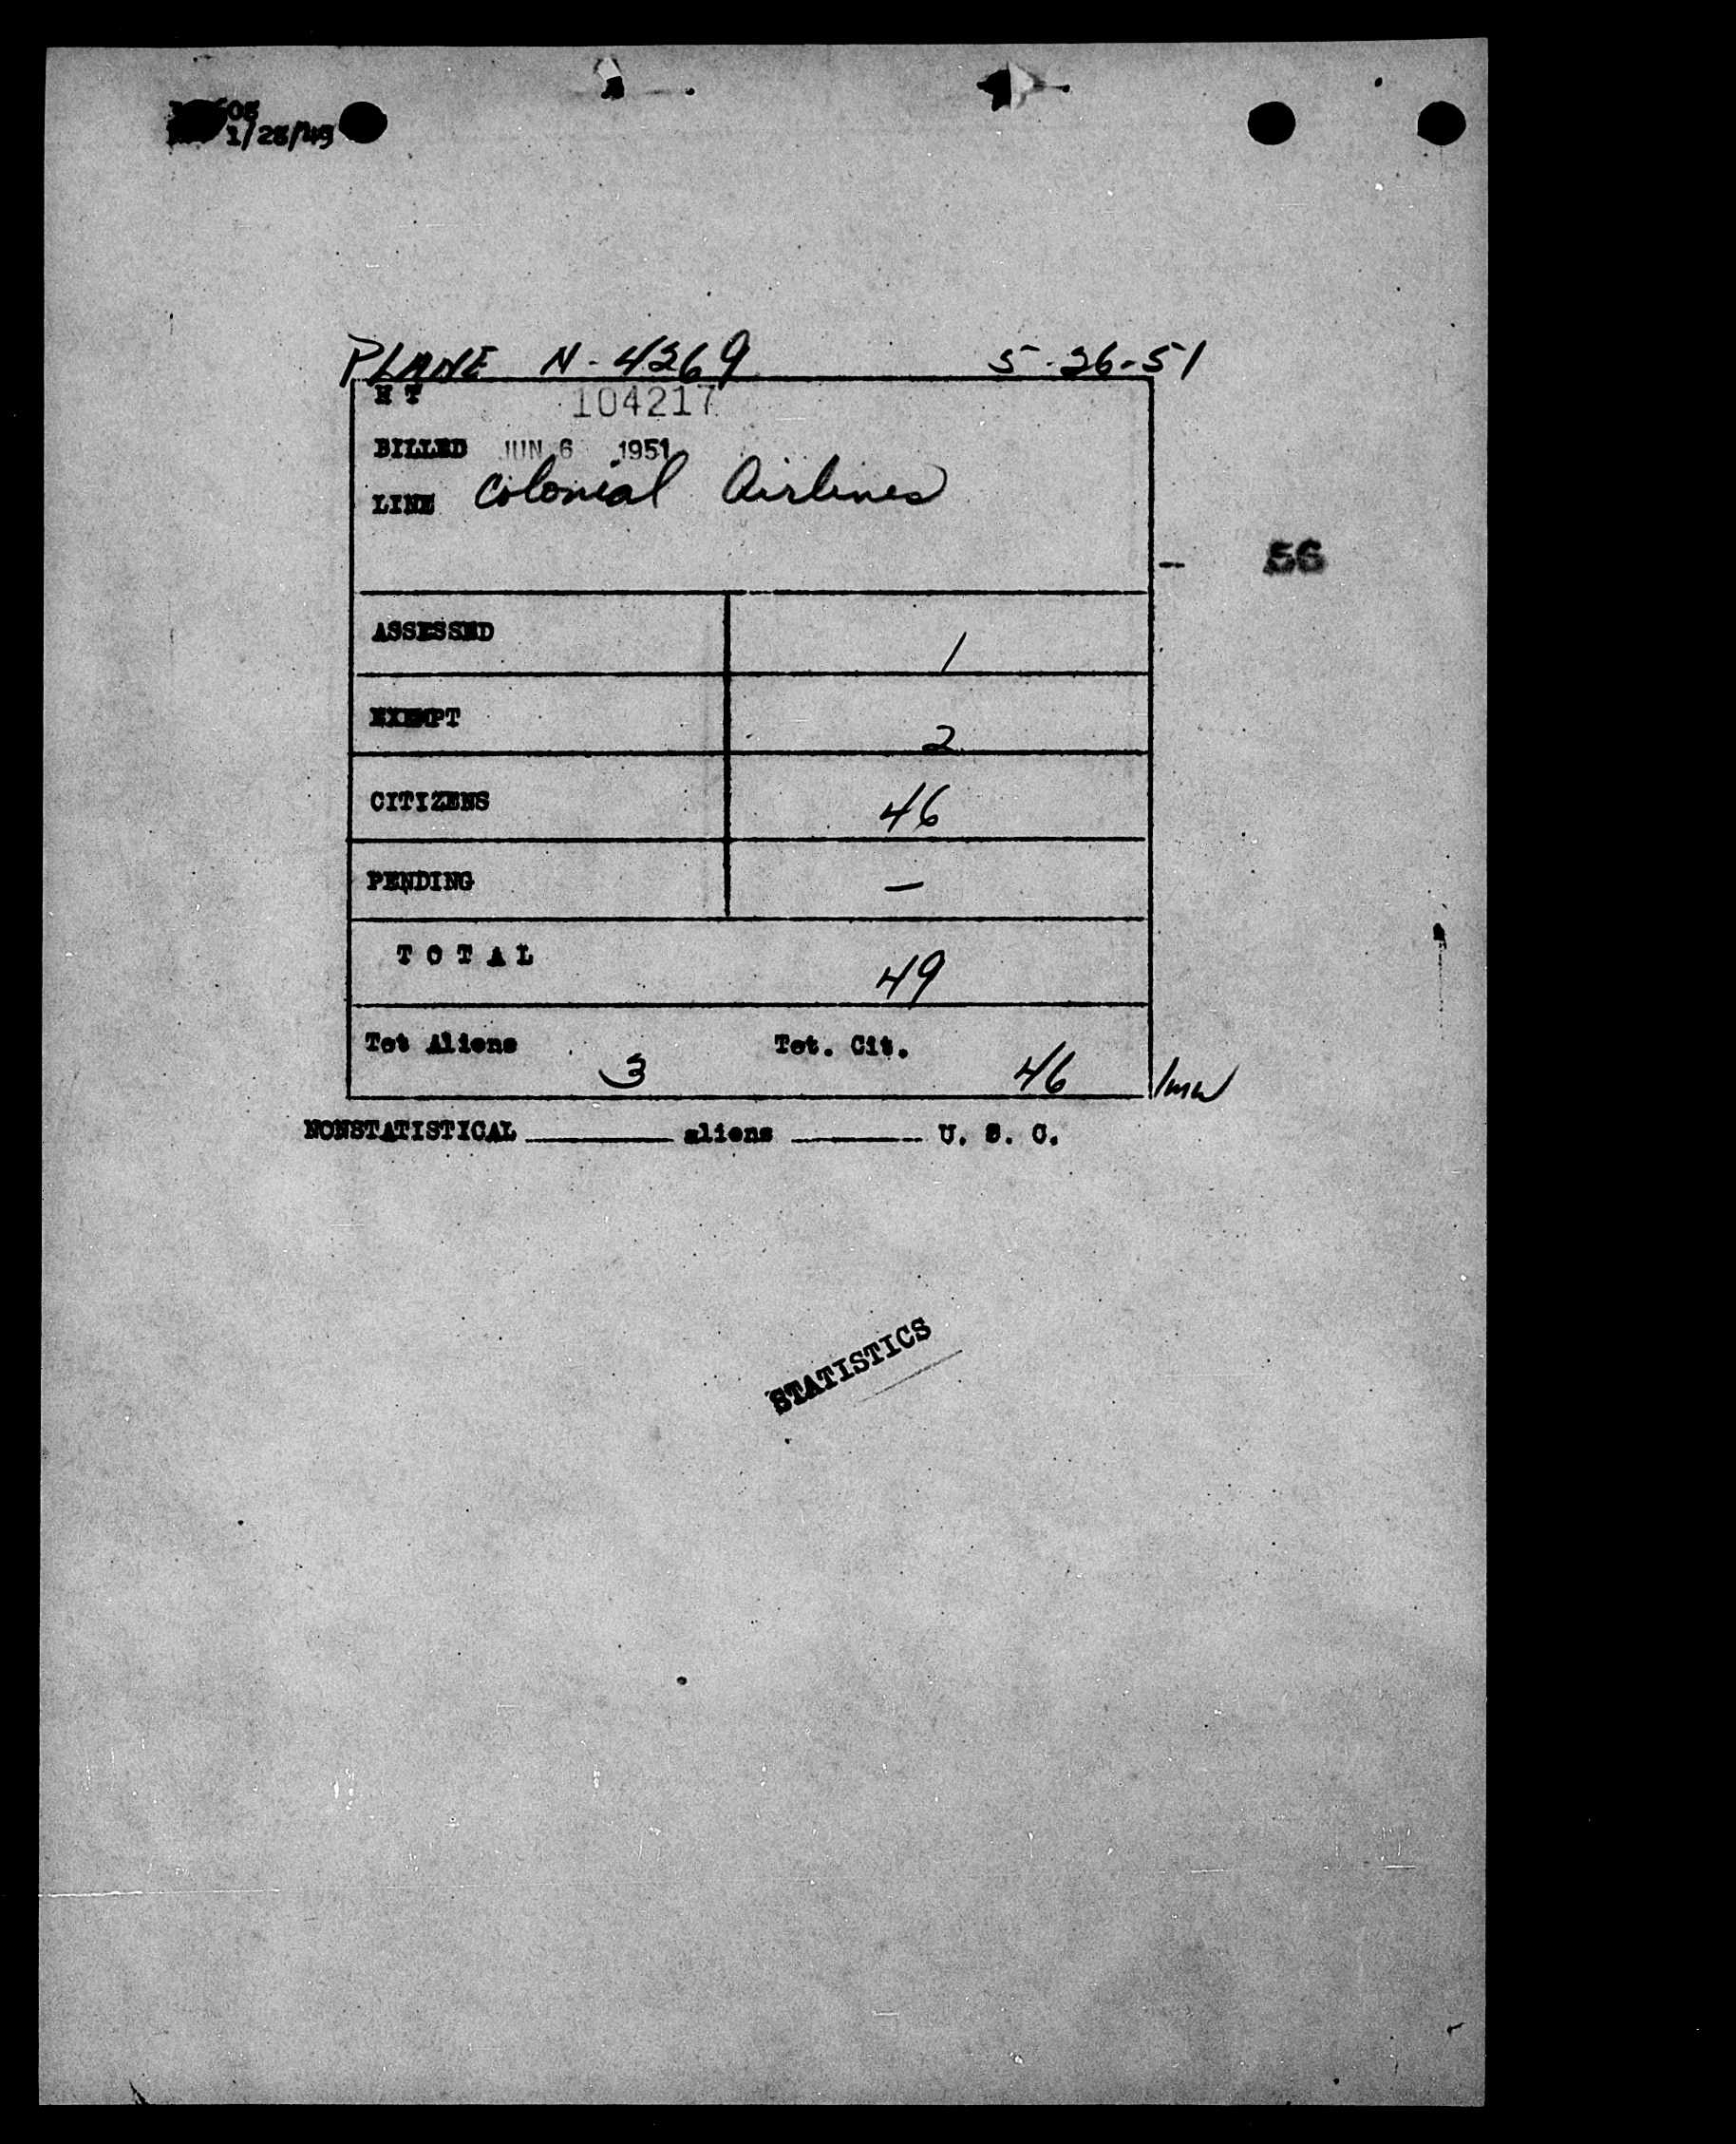 1/25/49
PLANE N-4269 5-26-51
H T 104217
BILLED JUN 6 1951
LINE Colonial Airlines
56
ASSESSED 1
EXEMPT 2
CITIZENS 46
PENDING —
TOTAL 49
Tot Aliens 3 Tot. Cit. 46
NONSTATISTICAL ________ aliens ________ U. S. C.
STATISTICS